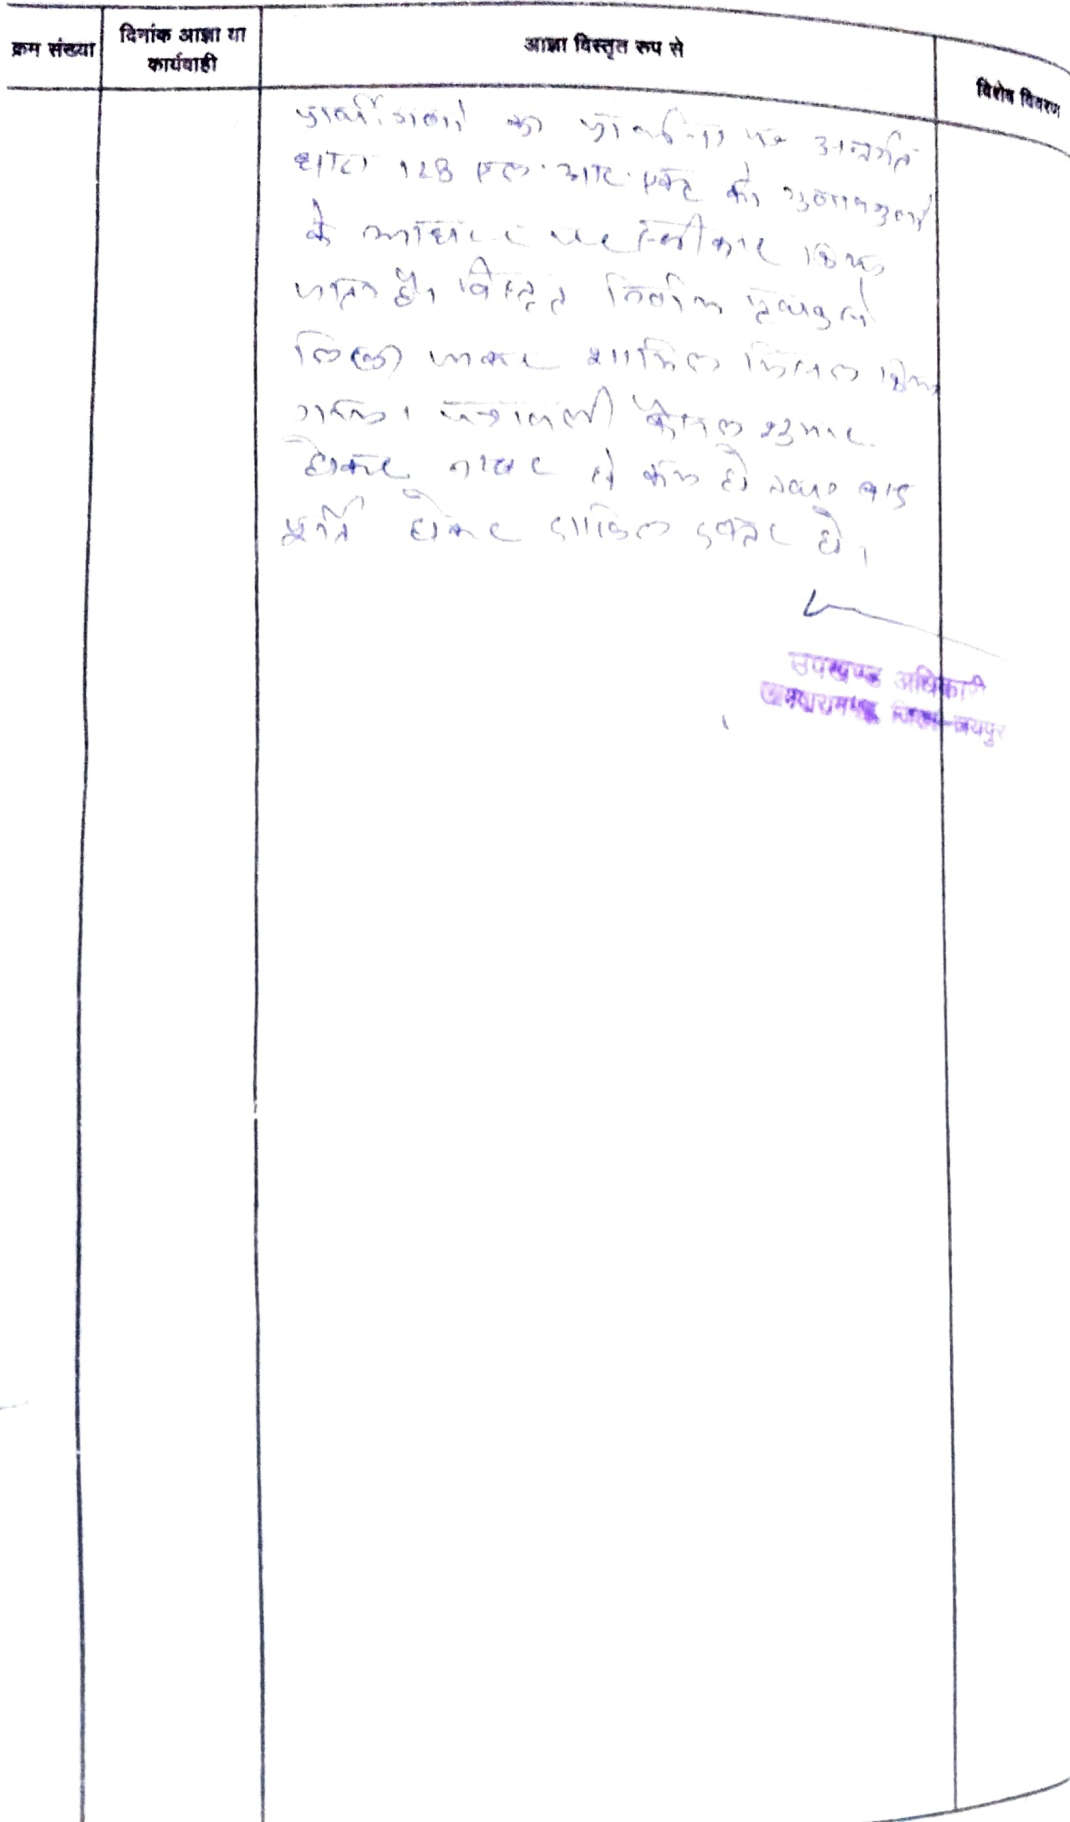 क्रम संख्या
दिनांक आज्ञा या
कार्यवाही
आज्ञा विस्तृत रूप से
विशेष विवरण
प्रार्थीगणों का प्रार्थना पत्र अन्तर्गत
धारा 128 एल. आर. एक्ट को गुणावगुणों
के आधार पर स्वीकार किया
जाता है। विस्तृत निर्णय पृथक से
लिखा जाकर शामिल मिसल किया
गया। पत्रावली फैसल शुमार
होकर नम्बर से कम हो बाद
पूर्ति होकर दाखिल दफ्तर हो।
उपखण्ड अधिकारी
जमवारामगढ़ जिला-जयपुर